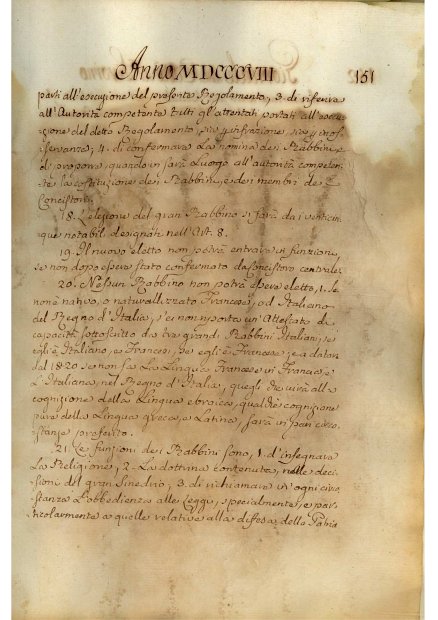 Anno MDCCCVIII 151
parti all'esecuzione del presente Regolamento; 3. di riferire
all'Autorità competente tutti gl'attentati portati all'esecu-
-zione del detto Regolamento, sia per infrazione, sia per inof-
-servanza; 4. di confermare la nomina dei Rabbini, e
di proporre, quando si farà luogo all'autorità competen-
-te la costituzione dei Rabbini, e dei membri de
Concistori.
18. L'elezione del gran Rabbino si farà dai venticin-
que notabili designati nell'Art. 8.
19. Il nuovo eletto non potrà entrare in funzioni,
se non dopo essere stato confermato da Concistoro centrale.
20. Nessun Rabbino non potrà essere eletto, 1. Se
non è nativo, o naturalizzato Francese, od Italiano
del Regno d'Italia, s'ei non riporta un'Attestato di
capacità sottoscritto da tre grandi Rabbini Italiani, se
egli è Italiano, e Francesi se egli è Francese, e a datar
dal 1820 se non sa la Lingua Francese in Francia, e
l'Italiana nel Regno d'Italia, quegli che unirà alla
cognizione della Lingua ebraica, qualche cognizione
pure della Lingua greca, e Latina, sarà in pari circo-
stanze preferito.
21. Le funzioni dei Rabbini sono, 1. d'insegnare
la Religione; 2. la dottrina contenuta nelle deci-
-sioni del gran Sinedrio; 3. di richiamare in ogni circo-
-stanza l'obbedienza alle Leggi, specialmente, e par-
ticolarmente a quelle relative alla difesa della Patria